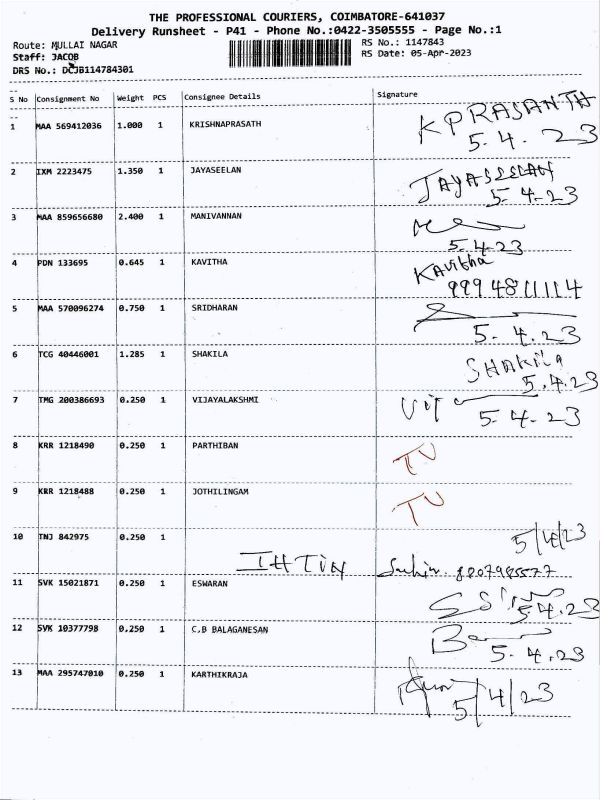 THE PROFESSIONAL COURIERS, COIMBATORE-641037
Delivery Runsheet - P41 - Phone No.:0422-3505555 - Page No.:1
Route: MULLAI NAGAR
RS No.: 1147843
Staff: JACOB
RS Date: 05-Apr-2023
DRS No.: DCJB114784301
S No Consignment No Weight PCS Consignee Details Signature
1 MAA 569412036 1.000 1 KRISHNAPRASATH K PRASANTH
5.4.23
2 IXM 2223475 1.350 1 JAYASEELAN JAYASEELAN
5.4.23
3 MAA 859656680 2.400 1 MANIVANNAN
5.4.23
4 PDN 133695 0.645 1 KAVITHA Kavitha
9994811114
5 MAA 570096274 0.750 1 SRIDHARAN
5.4.23
6 TCG 40446001 1.285 1 SHAKILA SHAKila
5.4.23
7 TMG 200386693 0.250 1 VIJAYALAKSHMI
5.4.23
8 KRR 1218490 0.250 1 PARTHIBAN TU
9 KRR 1218488 0.250 1 JOTHILINGAM TU
10 TNJ 842975 0.250 1 5/4/23
11 SVK 15021871 0.250 1 ESWARAN
5.4.23
12 SVK 10377798 0.250 1 C,B BALAGANESAN
5.4.23
13 MAA 295747010 0.250 1 KARTHIKRAJA
5/4/23